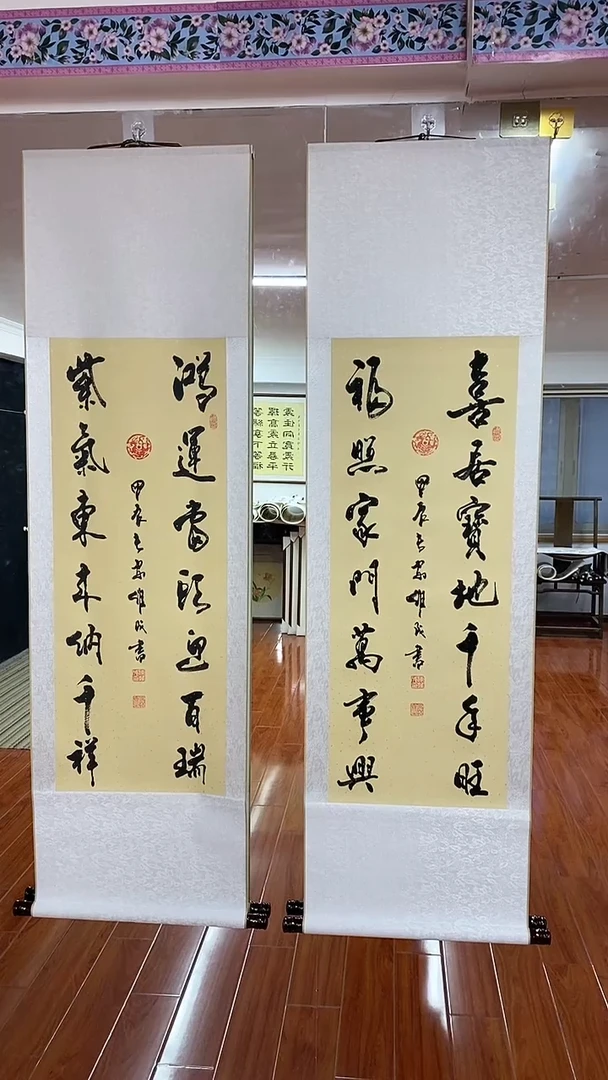 喜居寶地千年旺
福照家門萬事興
甲辰書
鴻運當頭迎百瑞
紫氣東來納千祥
甲辰書